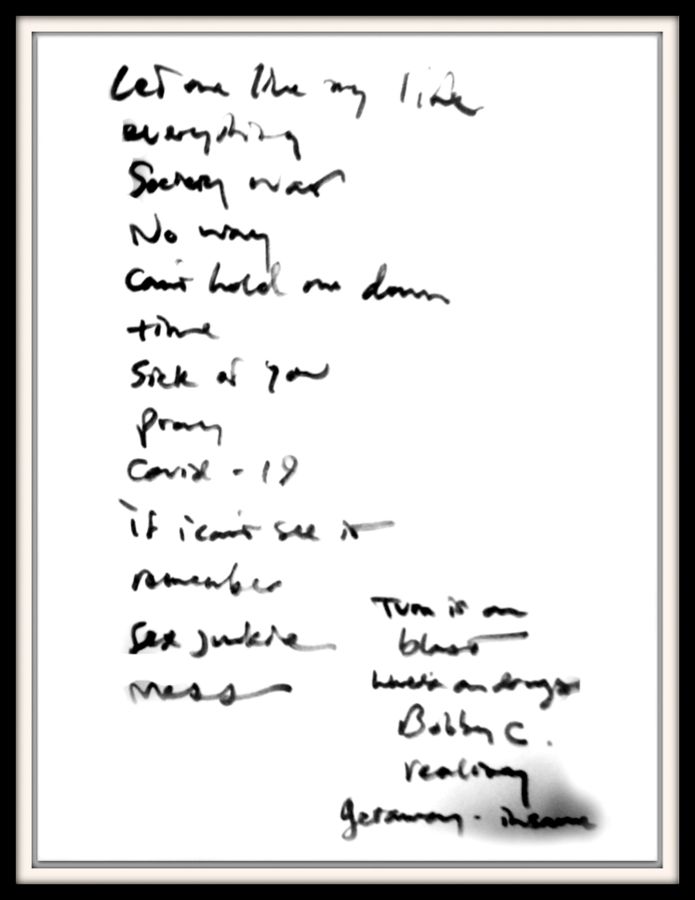 Let me live my life
everything
Society war
No way
Can't hold me down
time
Sick of you
pray
Covid - 19
if i can't see it
remember
Sex junkie
mess
Turn it on
blast
on drugs
Bobby C.
reality
getaway - insane